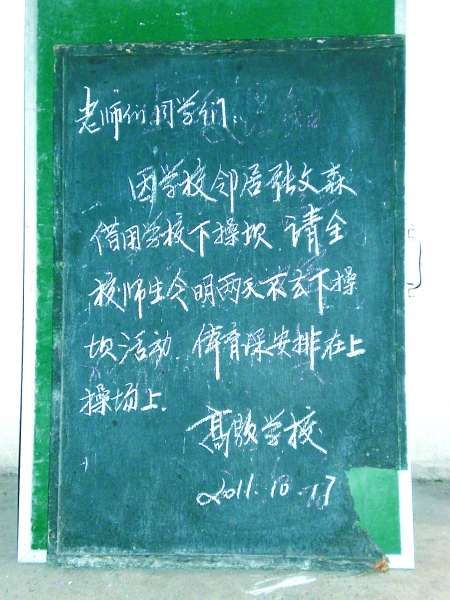 老师们同学们:
因学校邻居张文森
借用学校下操坝 请全
校师生今明两天不去下操
坝活动. 体育课安排在上
操场上.
学校
2011.10.17